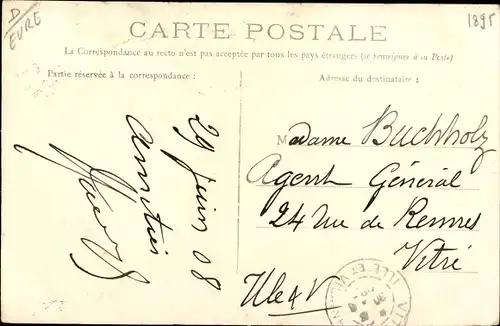 D
EURE
1895
CARTE POSTALE
La Correspondance au recto n'est pas acceptée par tous les pays étrangers (se renseigner à la Poste)
Partie réservée à la correspondance :
Adresse du destinataire :
29 juin 08
amitiés
Madame Buchholz
Agent Général
24 rue de Rennes
Vitré
Ille & V
ILLE ET VILAINE